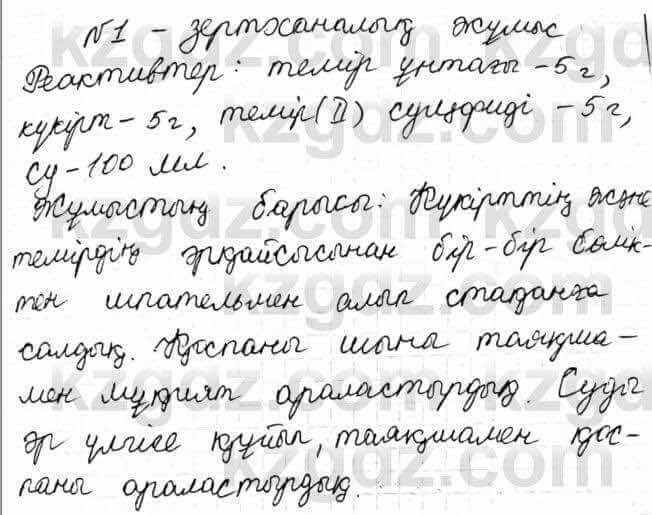 №1 - зертханалық жұмыс
Реактивтер: темір ұнтағы - 5 г,
күкірт - 5 г, темір (II) сульфиді - 5 г,
су - 100 мл.
Жұмыстың барысы: Күкірттің және
темірдің әрқайсысынан бір-бір бөлік-
тен шпательмен алып стаканға
салдық. Қоспаны шыны таяқша-
мен мұқият араластырдық. Суды
әр үлгісе құйып, таяқшамен қос-
паны араластырдық.
kzgdz.com